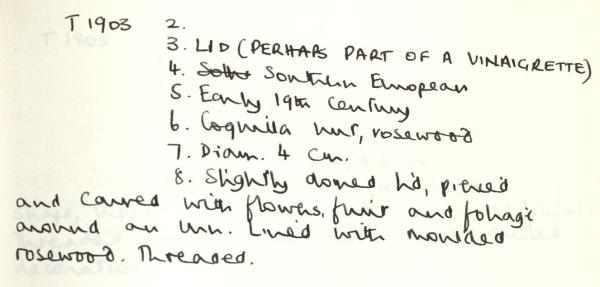 T 1903 2.
3. LID (PERHAPS PART OF A VINAIGRETTE)
4. Southern European
5. Early 19th Century
6. Coquilla nut, rosewood
7. Diam. 4 cm.
8. Slightly domed lid, pierced
and carved with flowers, fruit and foliage
around an urn. Lined with moulded
rosewood. Threaded.